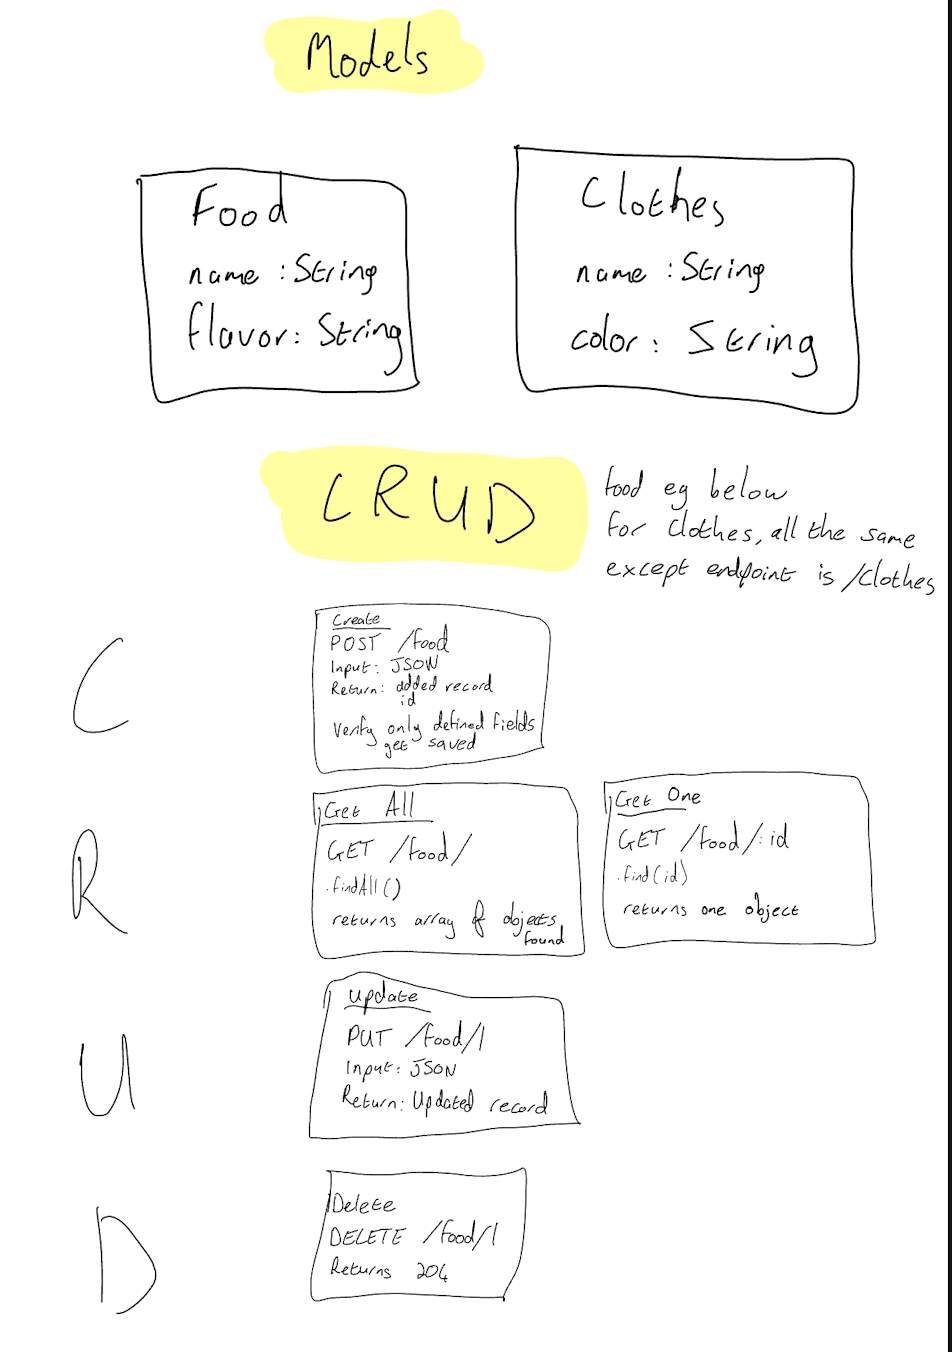 Models
Food
name : String
flavor: String
Clothes
name : String
color: String
CRUD
food eg below
for clothes, all the same
except endpoint is /clothes
C
Create
POST /food
Input: JSON
Return: added record
id
Verify only defined fields
get saved
R
Get All
GET /food/
.findAll()
returns array of objects
found
Get One
GET /food/:id
.find(id)
returns one object
U
Update
PUT /food/1
Input: JSON
Return: Updated record
D
Delete
DELETE /food/1
Returns 204